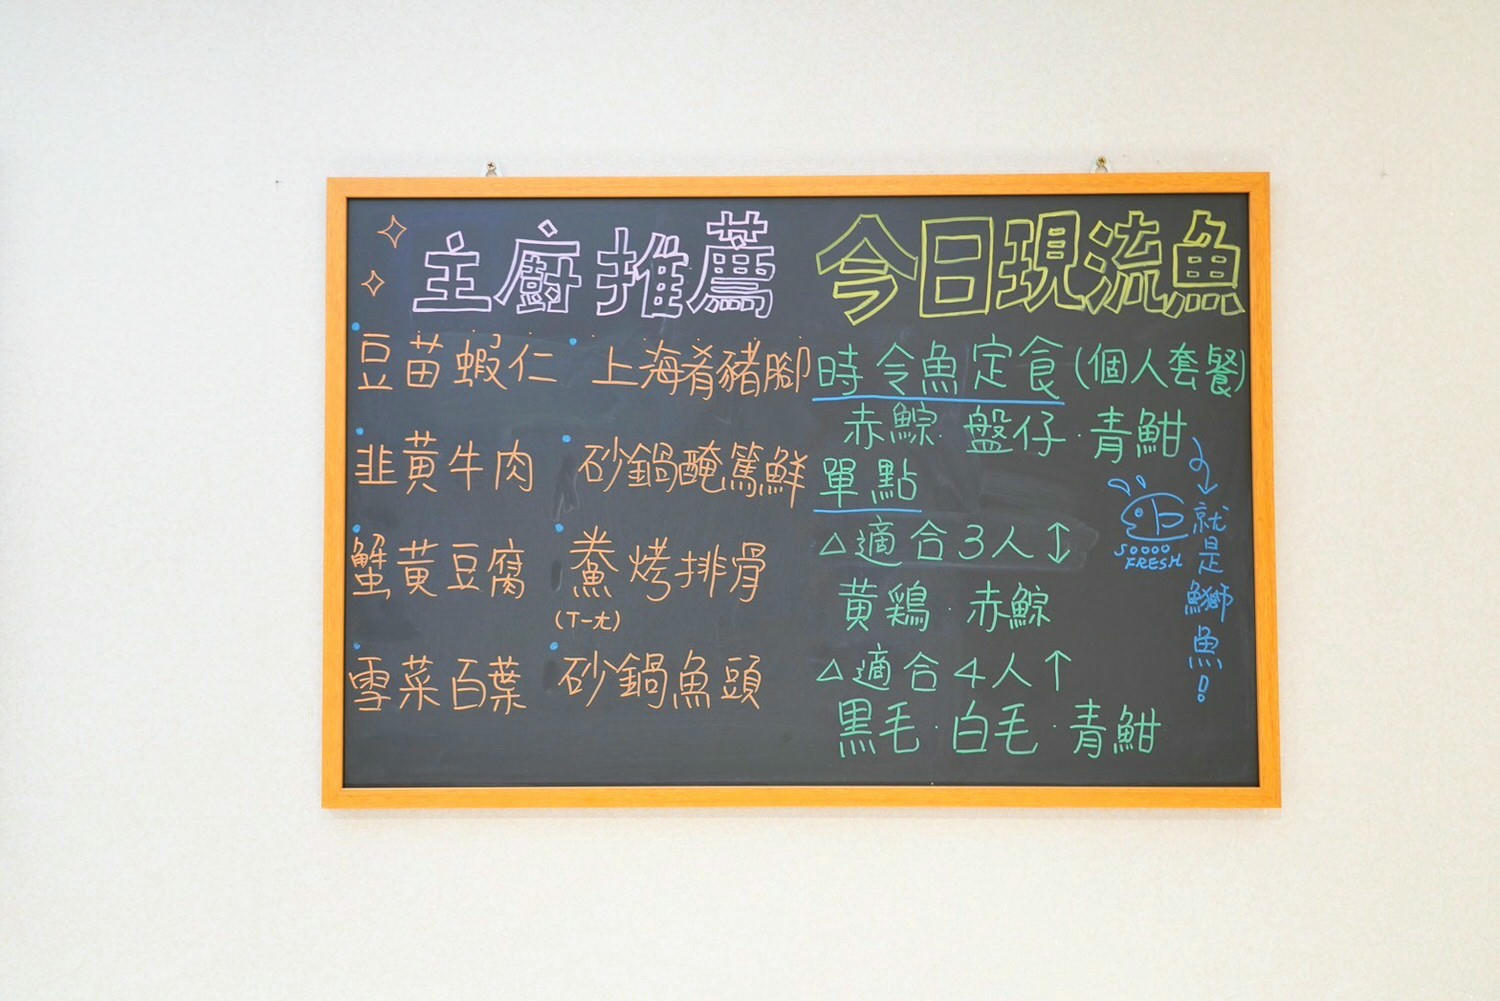 主廚推薦
豆苗蝦仁
上海肴豬腳
韭黃牛肉
砂鍋醃篤鮮
蟹黃豆腐
鯗烤排骨
(ㄒㄧㄤ)
雪菜百葉
砂鍋魚頭
今日現流魚
時令魚定食(個人套餐)
赤鯮·盤仔·青魽
單點
△適合3人↕
黃鶏·赤鯮
△適合4人↑
黑毛·白毛·青魽
就是鰤魚!
SOOOO
FRESH